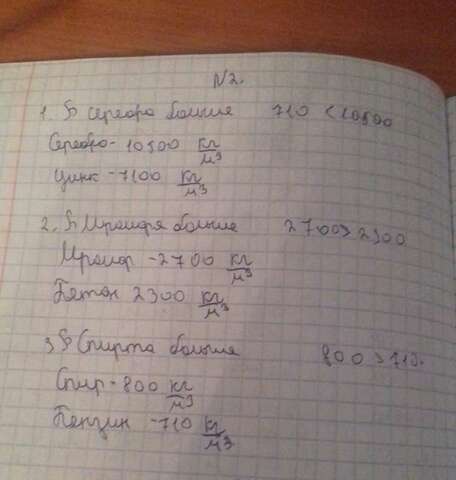 №2.
1. ρ серебра больше 710 < 10500
Серебро - 10500 кг/м³
Цинк - 7100 кг/м³
2. ρ Мрамора больше 2700 > 2300
Мрамор - 2700 кг/м³
Бетон 2300 кг/м³
3 ρ Спирта больше 800 > 710.
Спир - 800 кг/м³
Бензин - 710 кг/м³